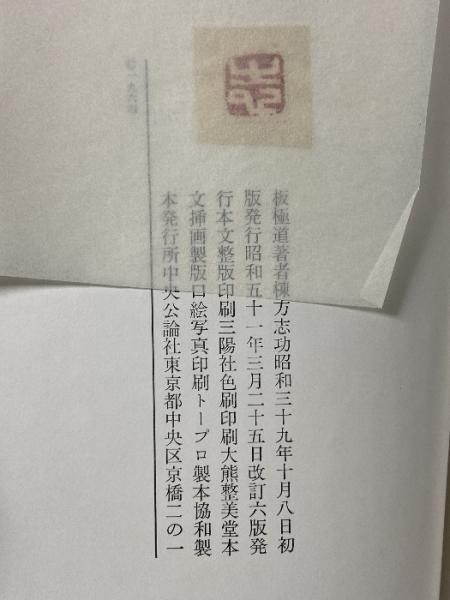 板極道著者棟方志功昭和三十九年十月八日初
版発行昭和五十一年三月二十五日改訂六版発
行本文整版印刷三陽社色刷印刷大熊整美堂本
文挿画製版口絵写真印刷トープロ製本協和製
本発行所中央公論社東京都中央区京橋二の一